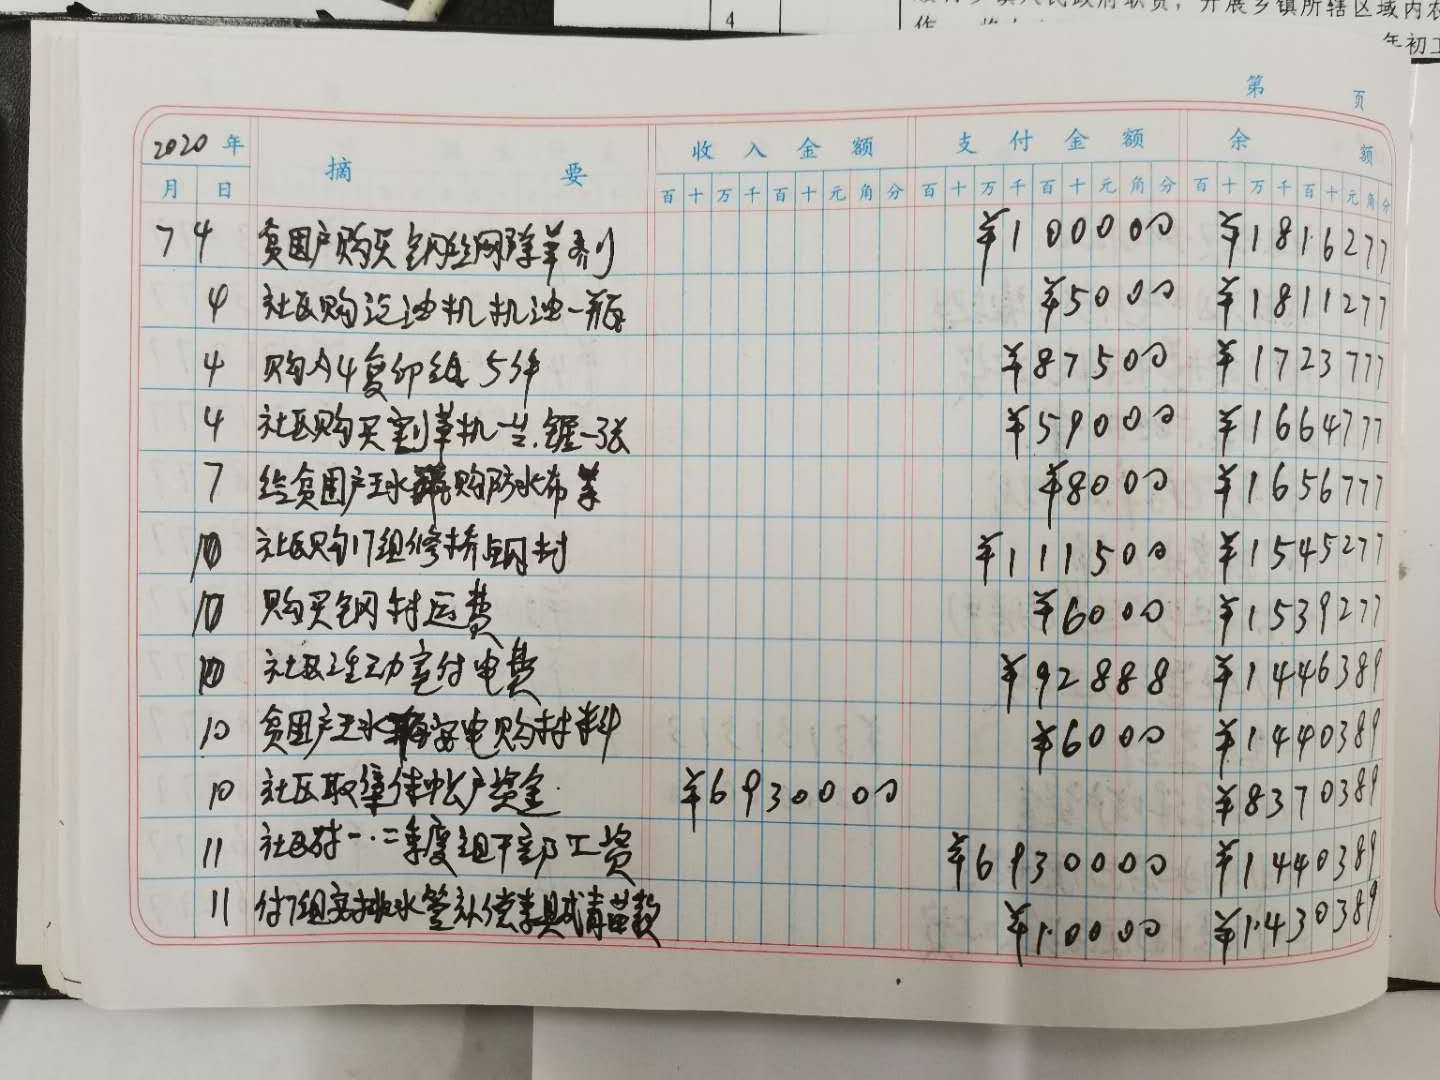 4
开展乡镇所辖区域内农
年初工
第 页
2020 年 摘 要 收 入 金 额 支 付 金 额 余 额
月 日 百 十 万 千 百 十 元 角 分 百 十 万 千 百 十 元 角 分 百 十 万 千 百 十 元 角 分
7 4 贫困户购买钢丝网除草剂 ¥100000 ¥1816277
4 社区购汽油机机油一瓶 ¥5000 ¥1811277
4 购A4复印纸5件 ¥87500 ¥1723777
4 社区购买割草机一台.锯一张 ¥59000 ¥1664777
7 给贫困户王水 购防水布 ¥8000 ¥1656777
10 社区购17组修桥钢材 ¥111500 ¥1545277
10 购买钢材运费 ¥6000 ¥1539277
10 社区 付电费 ¥92888 ¥1446389
10 贫困户王水 安电购材料 ¥6000 ¥1440389
10 社区取 帐户资金 ¥6930000 ¥8370389
11 社区付一.二季度组干部工资 ¥6930000 ¥1440389
11 付7组 排水管补偿 青苗款 ¥10000 ¥1430389